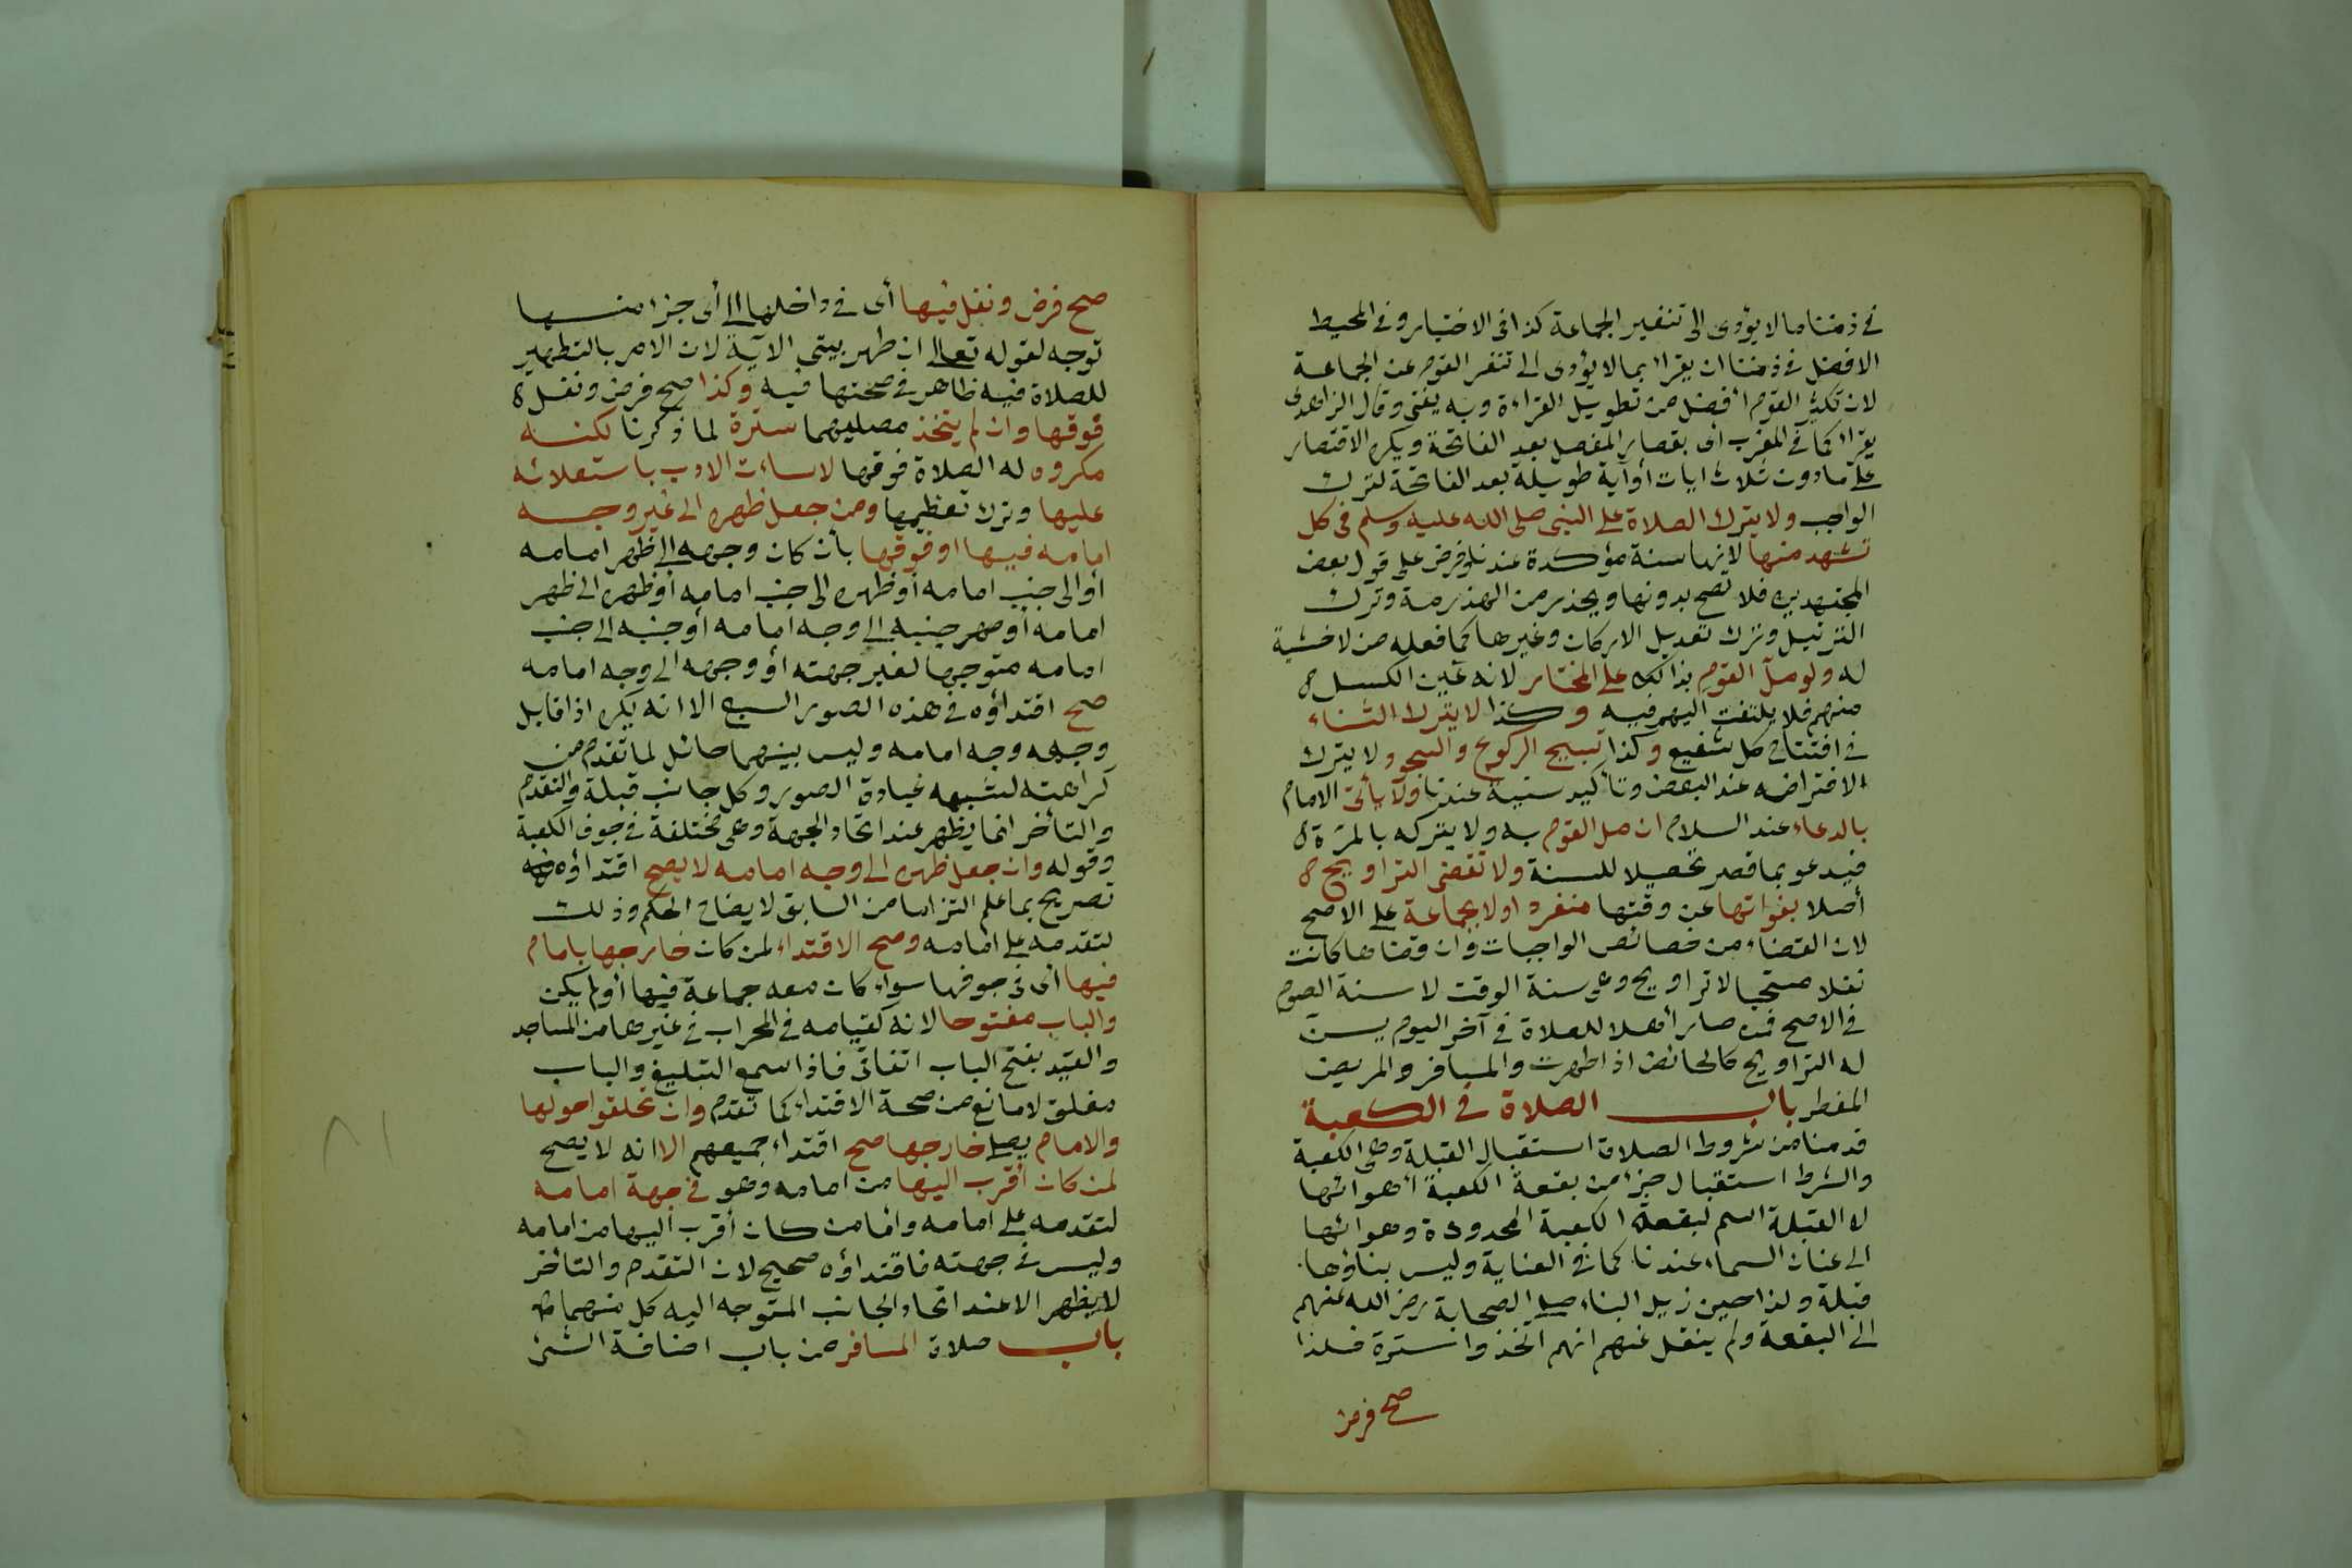 في زمننا ما لا يؤدى الى تنفير الجماعة كذا فى الاختيار وفي المحيط
الافضل في زمننا ان يقرأ بما لا يؤدى الى تنفر القوم عن الجماعة
لان تكثير القوم أفضل من تطويل القراءة وبه يفتى وقال الزاهدى
يقرأ كما في المغرب أى بقصار المفصل بعد الفاتحة ويكره الاقتصار
على ما دون ثلاث ايات أو آية طويلة بعد الفاتحة لترك
الواجب ولا يترك الصلاة على النبى صلى الله عليه وسلم فى كل
تشهد منها لانها سنة مؤكدة عندنا وفرض على قول بعض
المجتهدين فلا تصح بدونها ويحذر من الهذرمة وترك
الترتيل وترك تعديل الاركان وغيرها كما فعله من لا خشية
له ولو ملّ القوم بذالك على المختار لانه عين الكسل
منهم فلا يلتفت اليهم فيه وكذا لا يترك الثناء
في افتتاح كل شفيع وكذا تسبيح الركوع والسجو ولا يترك
الافتراضه عند البعض وتأكيد سنية عندنا ولا يأتى الامام
بالدعاء عند السلام ان مل القوم به ولا يتركه بالمرة
فيدعو بما قصر تحصيلا للسنة ولا تقضى التراويح
أصلا بفواتها عن وقتها منفردا ولا بجماعة على الاصح
لان القضاء من خصائص الواجبات وان قضاها كانت
نفلا مستحبا لا تراويح وهى سنة الوقت لا سنة الصوم
في الاصح فمن صار أهلا للصلاة في آخر اليوم يسن
له التراويح كالحائض اذا طهرت والمسافر والمريض
المفطر باب الصلاة في الكعبة
قدمنا من شروط الصلاة استقبال القبلة وهى الكعبة
والشرط استقبال جزأ من بقعة الكعبة أ هوائها
لان القبلة اسم لبقعة الكعبة المحدودة وهوائها
الى عنان السماء عندنا كما في العناية وليس بناؤها
قبلة ولذا حين زيل البناء صلى الصحابة رضى الله عنهم
الى البقعة ولم ينقل عنهم انهم اتخذوا سترة فلذا
صح فرض
صح فرض ونفل فيها أى في داخلها الى أى جزأ منها
توجه لقوله تعالى ان طهر بيتى الآية لان الامر بالتطهير
للصلاة فيه ظاهر في صحتها فيه وكذا صح فرض ونفل
فوقها وان لم يتخذ مصليهما سترة لما ذكرنا لكنه
مكروه له الصلاة فوقها لاساءت الادب باستعلائه
عليها وترك تعظيمها ومن جعل ظهره الى غير وجه
امامه فيها او فوقها بأن كان وجهه الى ظهر امامه
أو الى جنب امامه أو ظهره الى جنب امامه أو ظهره الى ظهر
امامه أو جنبه الى وجه امامه أو جنبه الى جنب
امامه متوجها لغير جهته أو وجهه الى وجه امامه
صح اقتداؤه في هذه الصور السبع الا انه يكره اذا قابل
وجهه وجه امامه وليس بينهما حائل لما تقدم من
كراهته لشبهه عبادة الصور وكل جانب قبلة والتقدم
والتأخر انما يظهر عند اتحاد الجهة وهى مختلفة في جوف الكعبة
وقوله وان جعل ظهره الى وجه امامه لا يصح اقتداؤه
تصريح بما علم التزاما من السابق لايضاح الحكم وذلك
لتقدمه على امامه وصح الاقتداء لمن كان خارجها بامام
فيها أى في جوفها سواء كان معه جماعة فيها أو لم يكن
والباب مفتوحا لانه كقيامه في المحراب في غيرها من المساجد
والقيد بفتح الباب اتفاقى فاذا سمع التبليغ والباب
مغلق لا مانع من صحة الاقتداء كما تقدم وان تحلقوا حولها
والامام يصلى خارجها صح اقتداء جميعهم الا انه لا يصح
لمن كان أقرب اليها من امامه وهو في جهة امامه
لتقدمه على امامه واما من كان أقرب اليها من امامه
وليس في جهته فاقتداؤه صحيح لان التقدم والتأخر
لا يظهر الا عند اتحاد الجانب المتوجه اليه كل منهما
باب صلاة المسافر من باب اضافة الشئ